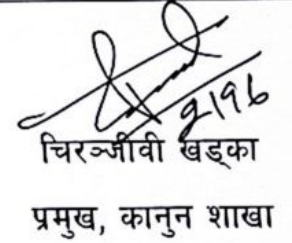 चिरञ्जीवी खड्का
प्रमुख, कानुन शाखा